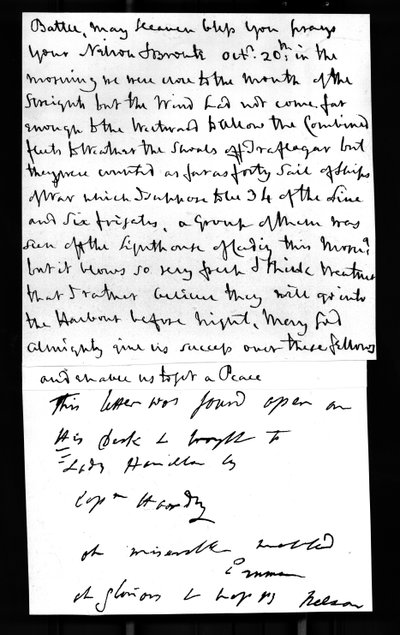 Battle, may heaven bless you prays
your Nelson & Bronte Octr. 20th. in the
morning we were close to the mouth of the
Streights but the Wind had not come far
enough to the Westward to allow the Combined
fleets to Weather the Shoals off Traflagar but
they were counted as far as forty Sail of Ships
of War which I suppose to be 34 of the Line
and Six frigates, a Group of them was
seen off the Lighthouse of Cadiz this Morng
but it blows so very fresh & thick weather
that I rather believe they will go into
the Harbour before night, May God
Almighty give us success over these fellows
and enable us to get a Peace
This letter was found open on
His Desk & brought to
Lady Hamilton by
Capn Hardy
oh miserable wretched
Emma
oh glorious & happy Nelson